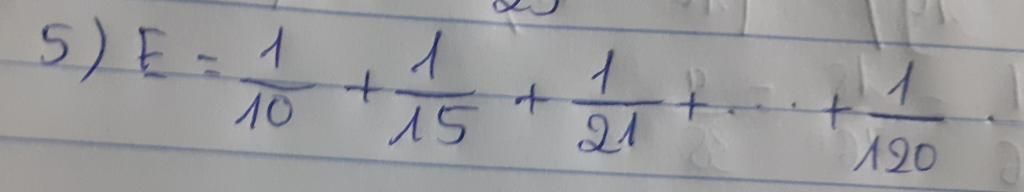 5) E = 1/10 + 1/15 + 1/21 + ... + 1/120 .